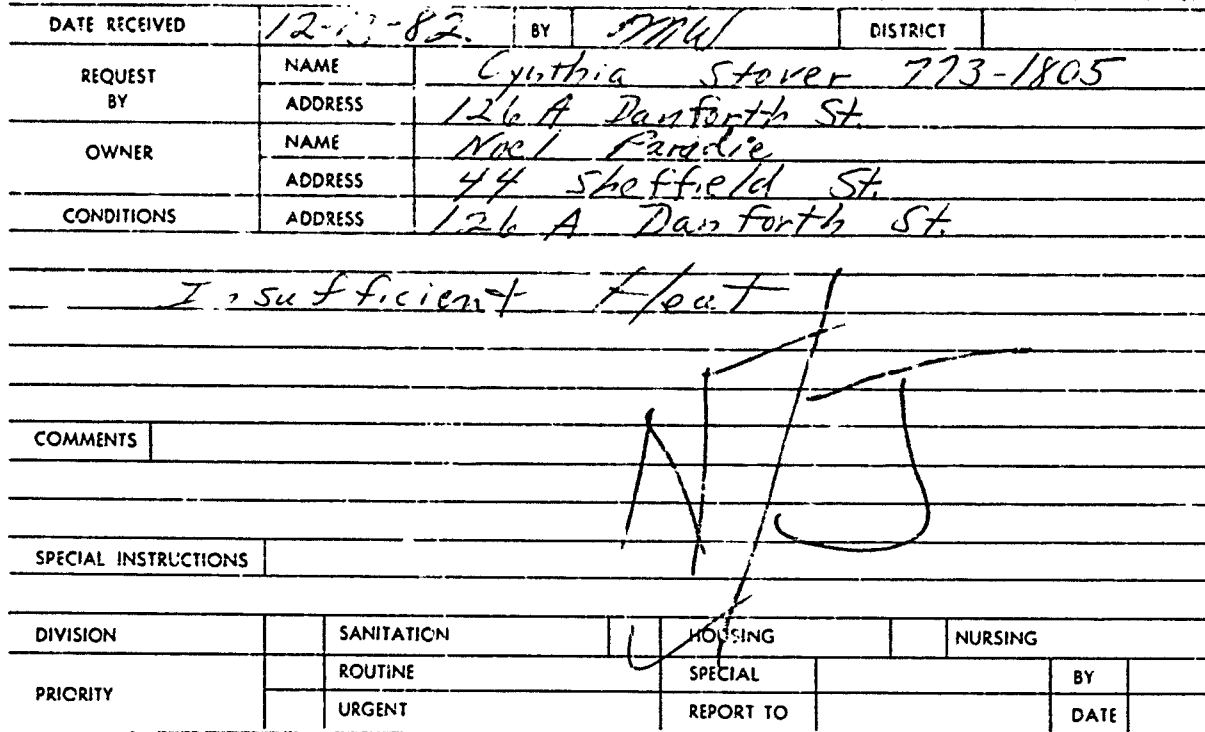 DATE RECEIVED 12- -82. BY MW DISTRICT
REQUEST BY NAME Cynthia Stover 773-1805
ADDRESS 126 A Danforth St.
OWNER NAME Noel Paradie
ADDRESS 44 Sheffield St.
CONDITIONS ADDRESS 126 A Danforth St.
Insufficient Heat
N/J
COMMENTS
SPECIAL INSTRUCTIONS
DIVISION SANITATION HOUSING NURSING
PRIORITY ROUTINE SPECIAL BY
URGENT REPORT TO DATE